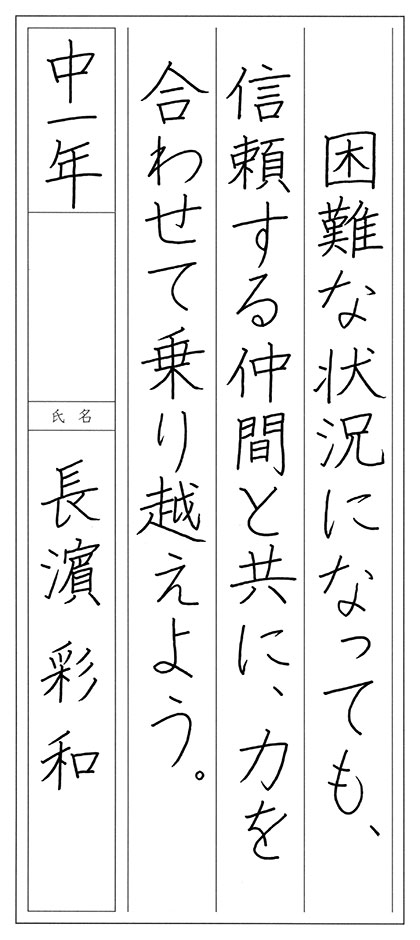 困難な状況になっても、
信頼する仲間と共に、力を
合わせて乗り越えよう。
中一年
氏名
長濱彩和